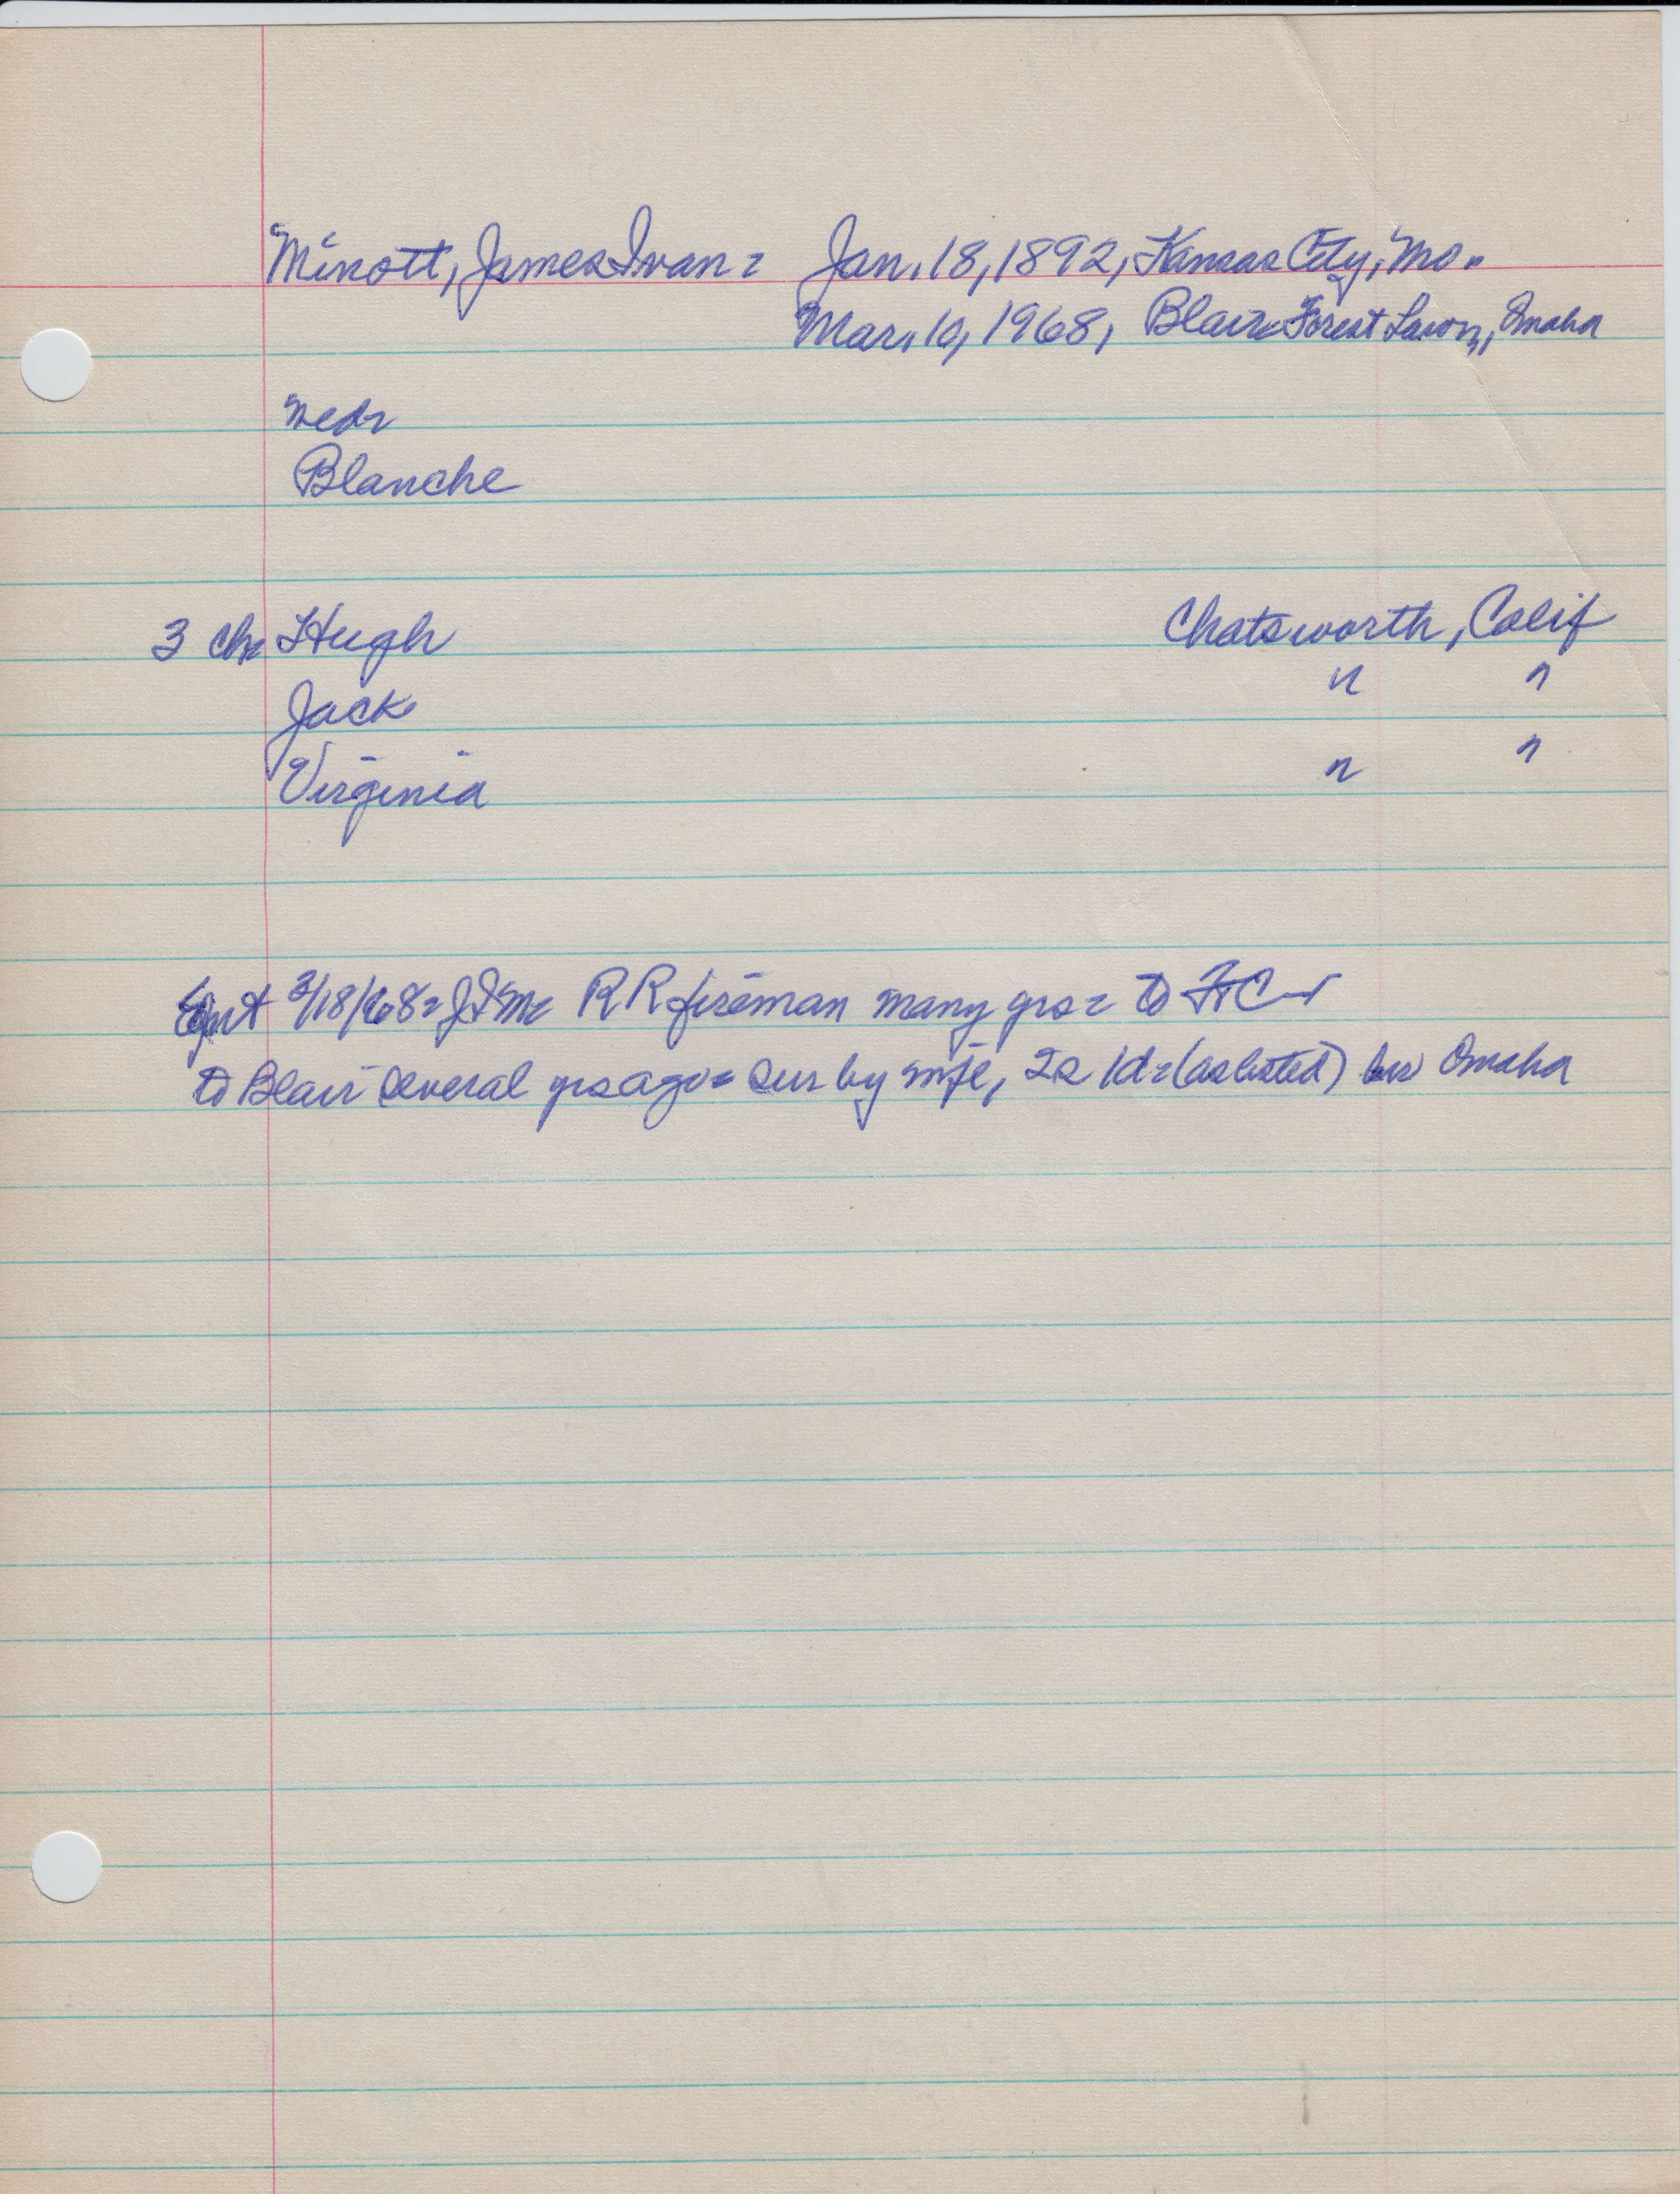 Minott, James Ivan = Jan. 18, 1892, Kansas City, Mo.
Mar. 10, 1968, Blair = Forest Lawn, Omaha
wed =
Blanche
3 ch = Hugh Chatsworth, Calif
Jack " "
Virginia " "
3/18/68 = JIM = RR fireman many yrs = to FtC
to Blair several yrs ago = sur by wife, 2s 1d = (as listed) bur Omaha